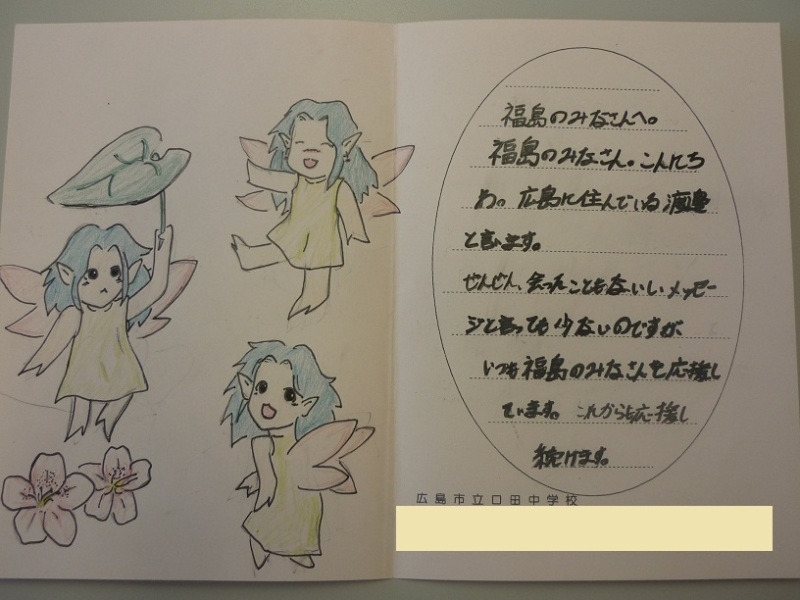 福島のみなさんへ。
福島のみなさん。こんにち
わ。広島に住んでいる渡邊
と言います。
ぜんぜん、会ったこともないしメッセー
ジと言っても少ないのですが、
いつも福島のみなさんを応援し
ています。これからも応援し
続けます。
広島市立口田中学校